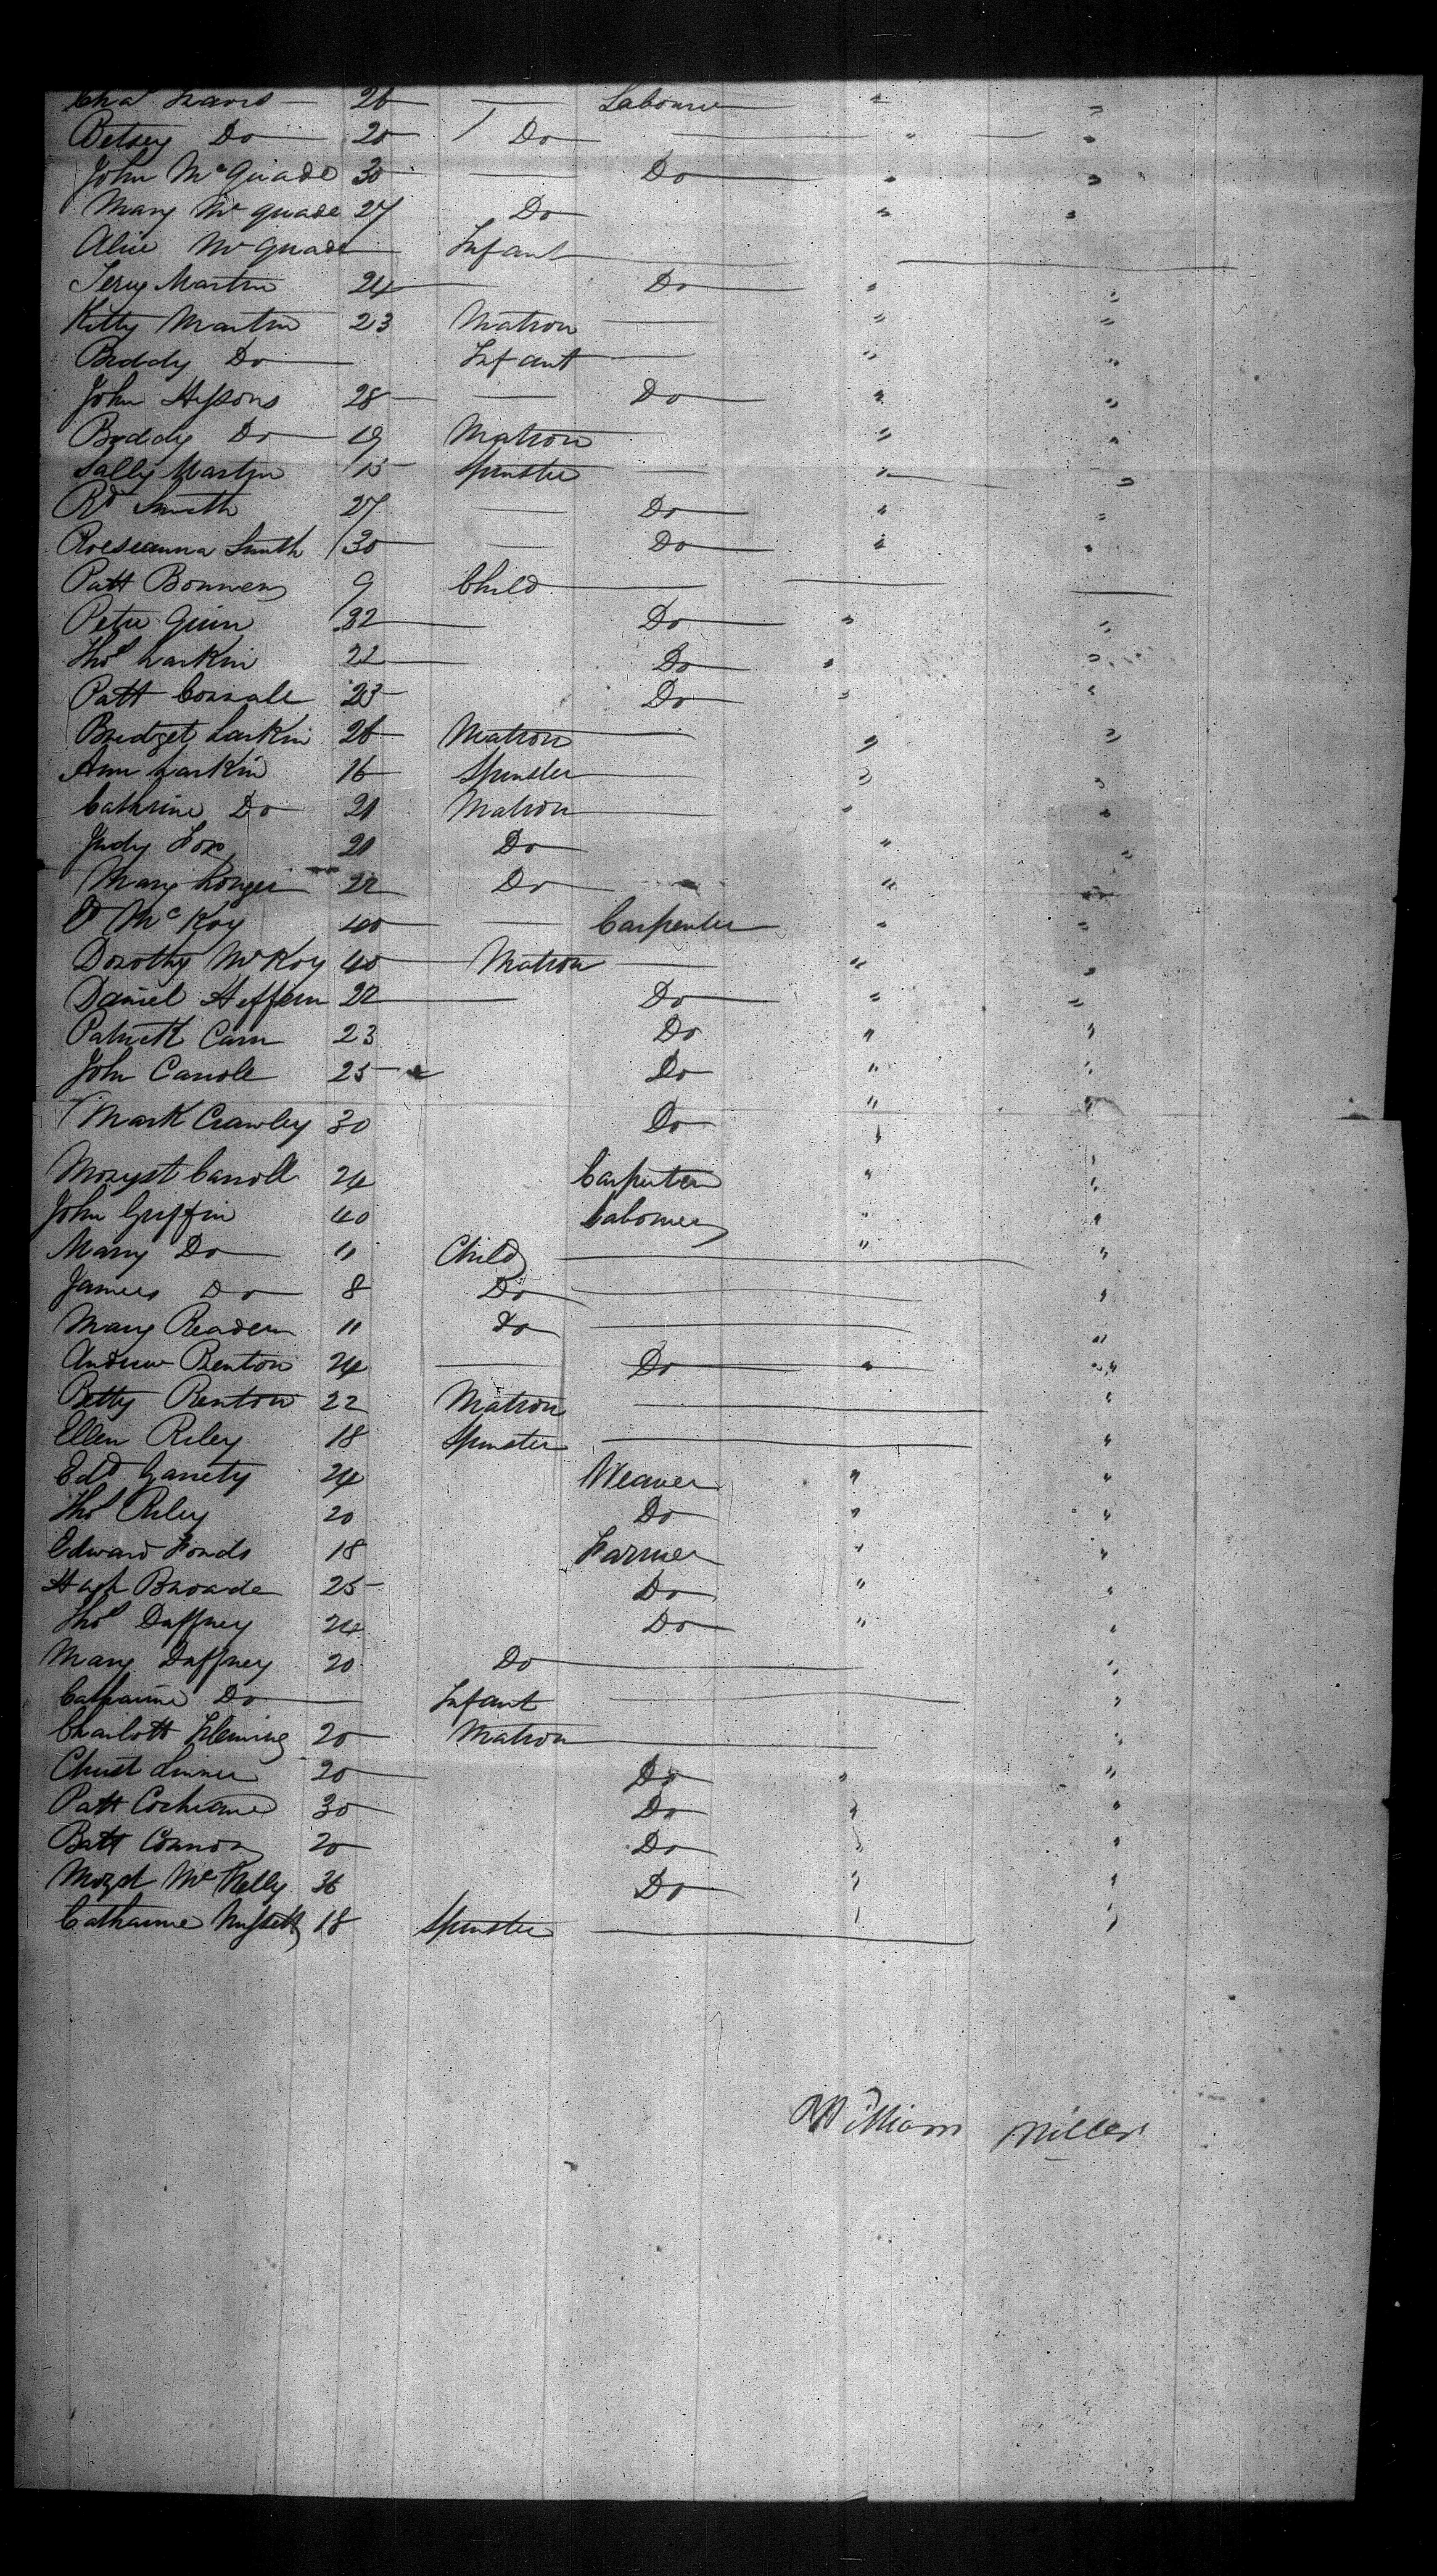 Chas Travis 26 Labourer " "
Betsey Do 20 Do " "
John McQuade 30 Do " "
Mary McQuade 27 Do " "
Alice McQuade Infant
Terry Martin 24 Do " "
Kitty Martin 23 Matron " "
Biddy Do Infant " "
John 28 Do " "
Biddy Do 19 Matron " "
Sally Martin 15 Spinster " "
Rd Smith 27 Do " "
Roeseanna Smith 30 Do " "
Patt 9 Child
Peter Quin 32 Do " "
Thos Larkin 22 Do " "
Patt 23 Do " "
Bridget Larkin 26 Matron " "
Ann Larkin 16 Spinster " "
Cathrine Do 21 Matron " "
Judy Fox 21 Do " "
Mary 22 Do " "
Ed McKoy 40 Carpenter " "
Dorothy McKoy 40 Matron " "
Daniel Heffern 22 Do " "
Patrick Carn 23 Do " "
John Carrole 25 Do " "
Mark Crawley 30 Do " "
Carroll 24 Carpenter " "
John Griffin 40 Labourer " "
Mary Do 11 Child " "
James Do 8 Do "
Mary Readern 11 Do "
Andrew Renton 24 Do " "
Betty Renton 22 Matron "
Ellen Riley 18 Spinster "
Edd Garrety 24 Weaver " "
Thos Riley 20 Do " "
Edward Fonds 18 Farmer " "
Hugh Broade 25 Do " "
Thos Duffney 24 Do " "
Mary Duffney 20 Do "
Catharine Do Infant "
Charlott Fleming 20 Matron "
20 Do " "
Patt Cochrane 30 Do " "
Batt Connor 20 Do " "
McKelly 36 Do " "
Catharine 18 Spinster "
William Miller